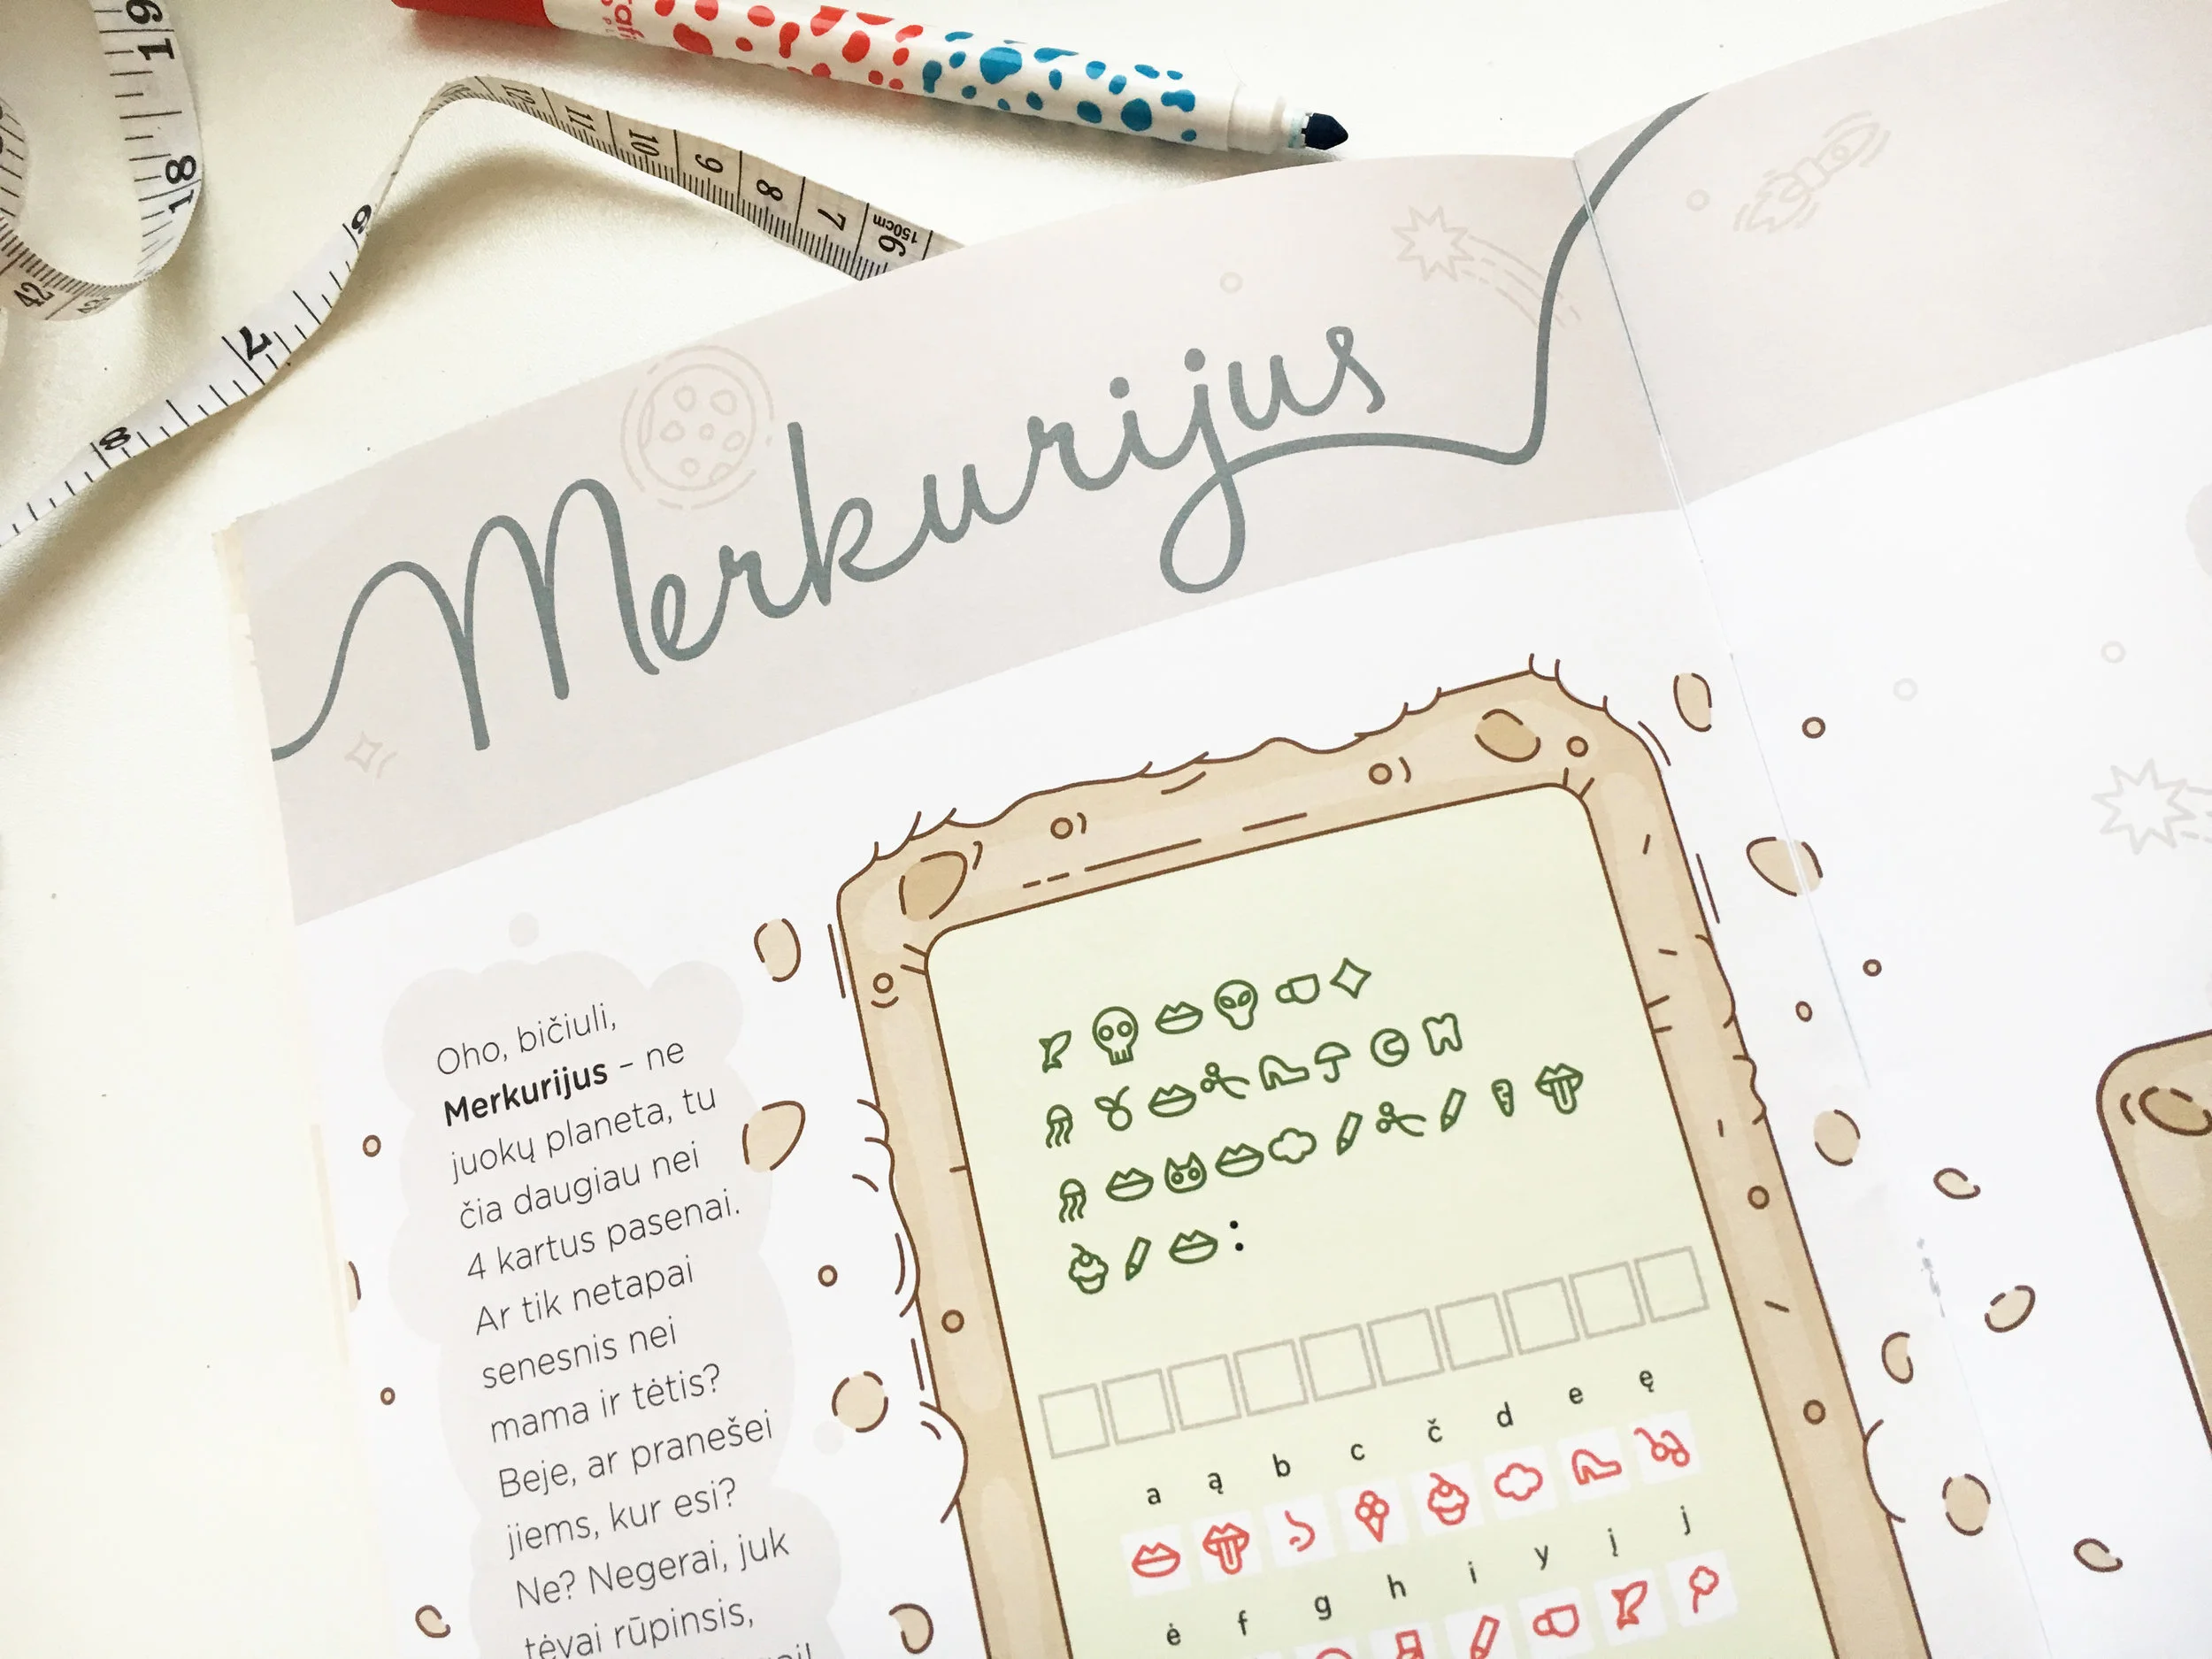 19
18
42
6
7
8
12
11
10
9
8
7
6
150cm
Merkurijus
Oho, bičiuli,
Merkurijus – ne
juokų planeta, tu
čia daugiau nei
4 kartus pasenai.
Ar tik netapai
senesnis nei
mama ir tėtis?
Beje, ar pranešei
jiems, kur esi?
Ne? Negerai, juk
tėvai rūpinsis,
:
a ą b c č d e ę
ė f g h i y į j